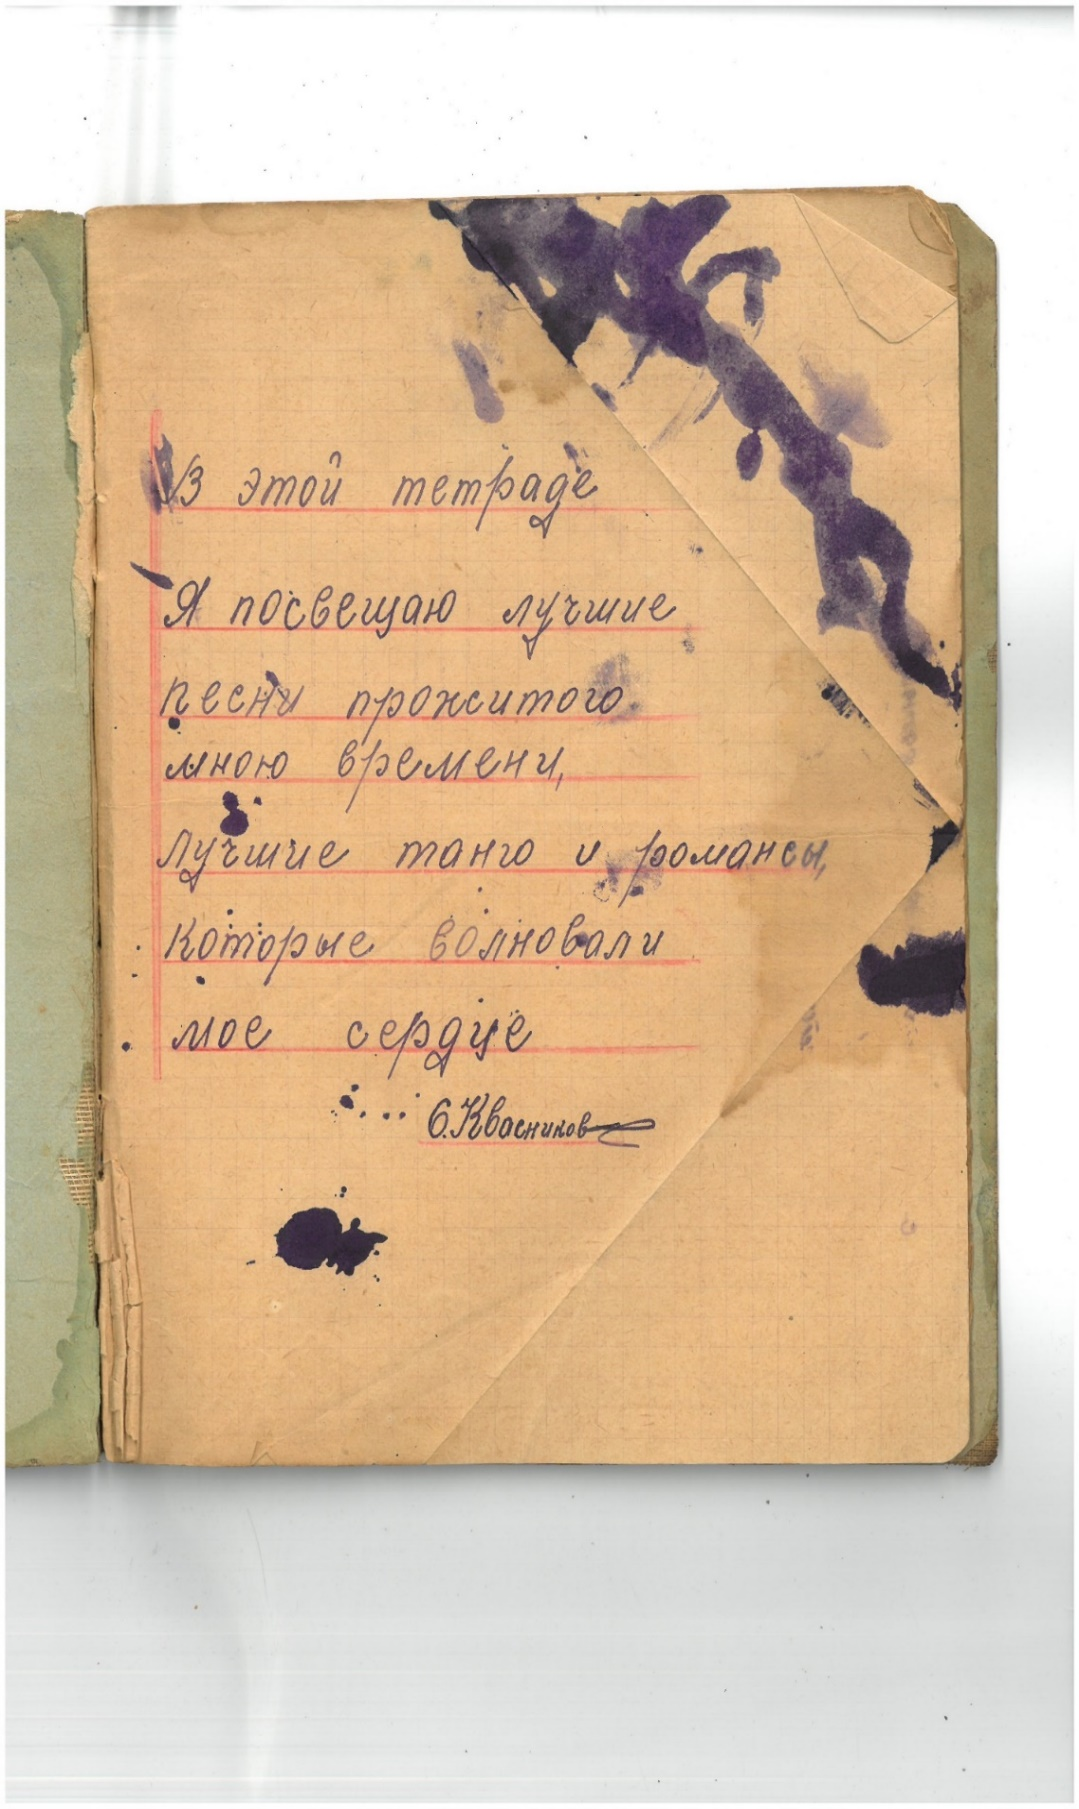 В этой тетраде
Я посвещаю лучшие
песни прожитого
мною времени,
Лучшие танго и романсы,
Которые волновали
мое сердце
Квасников